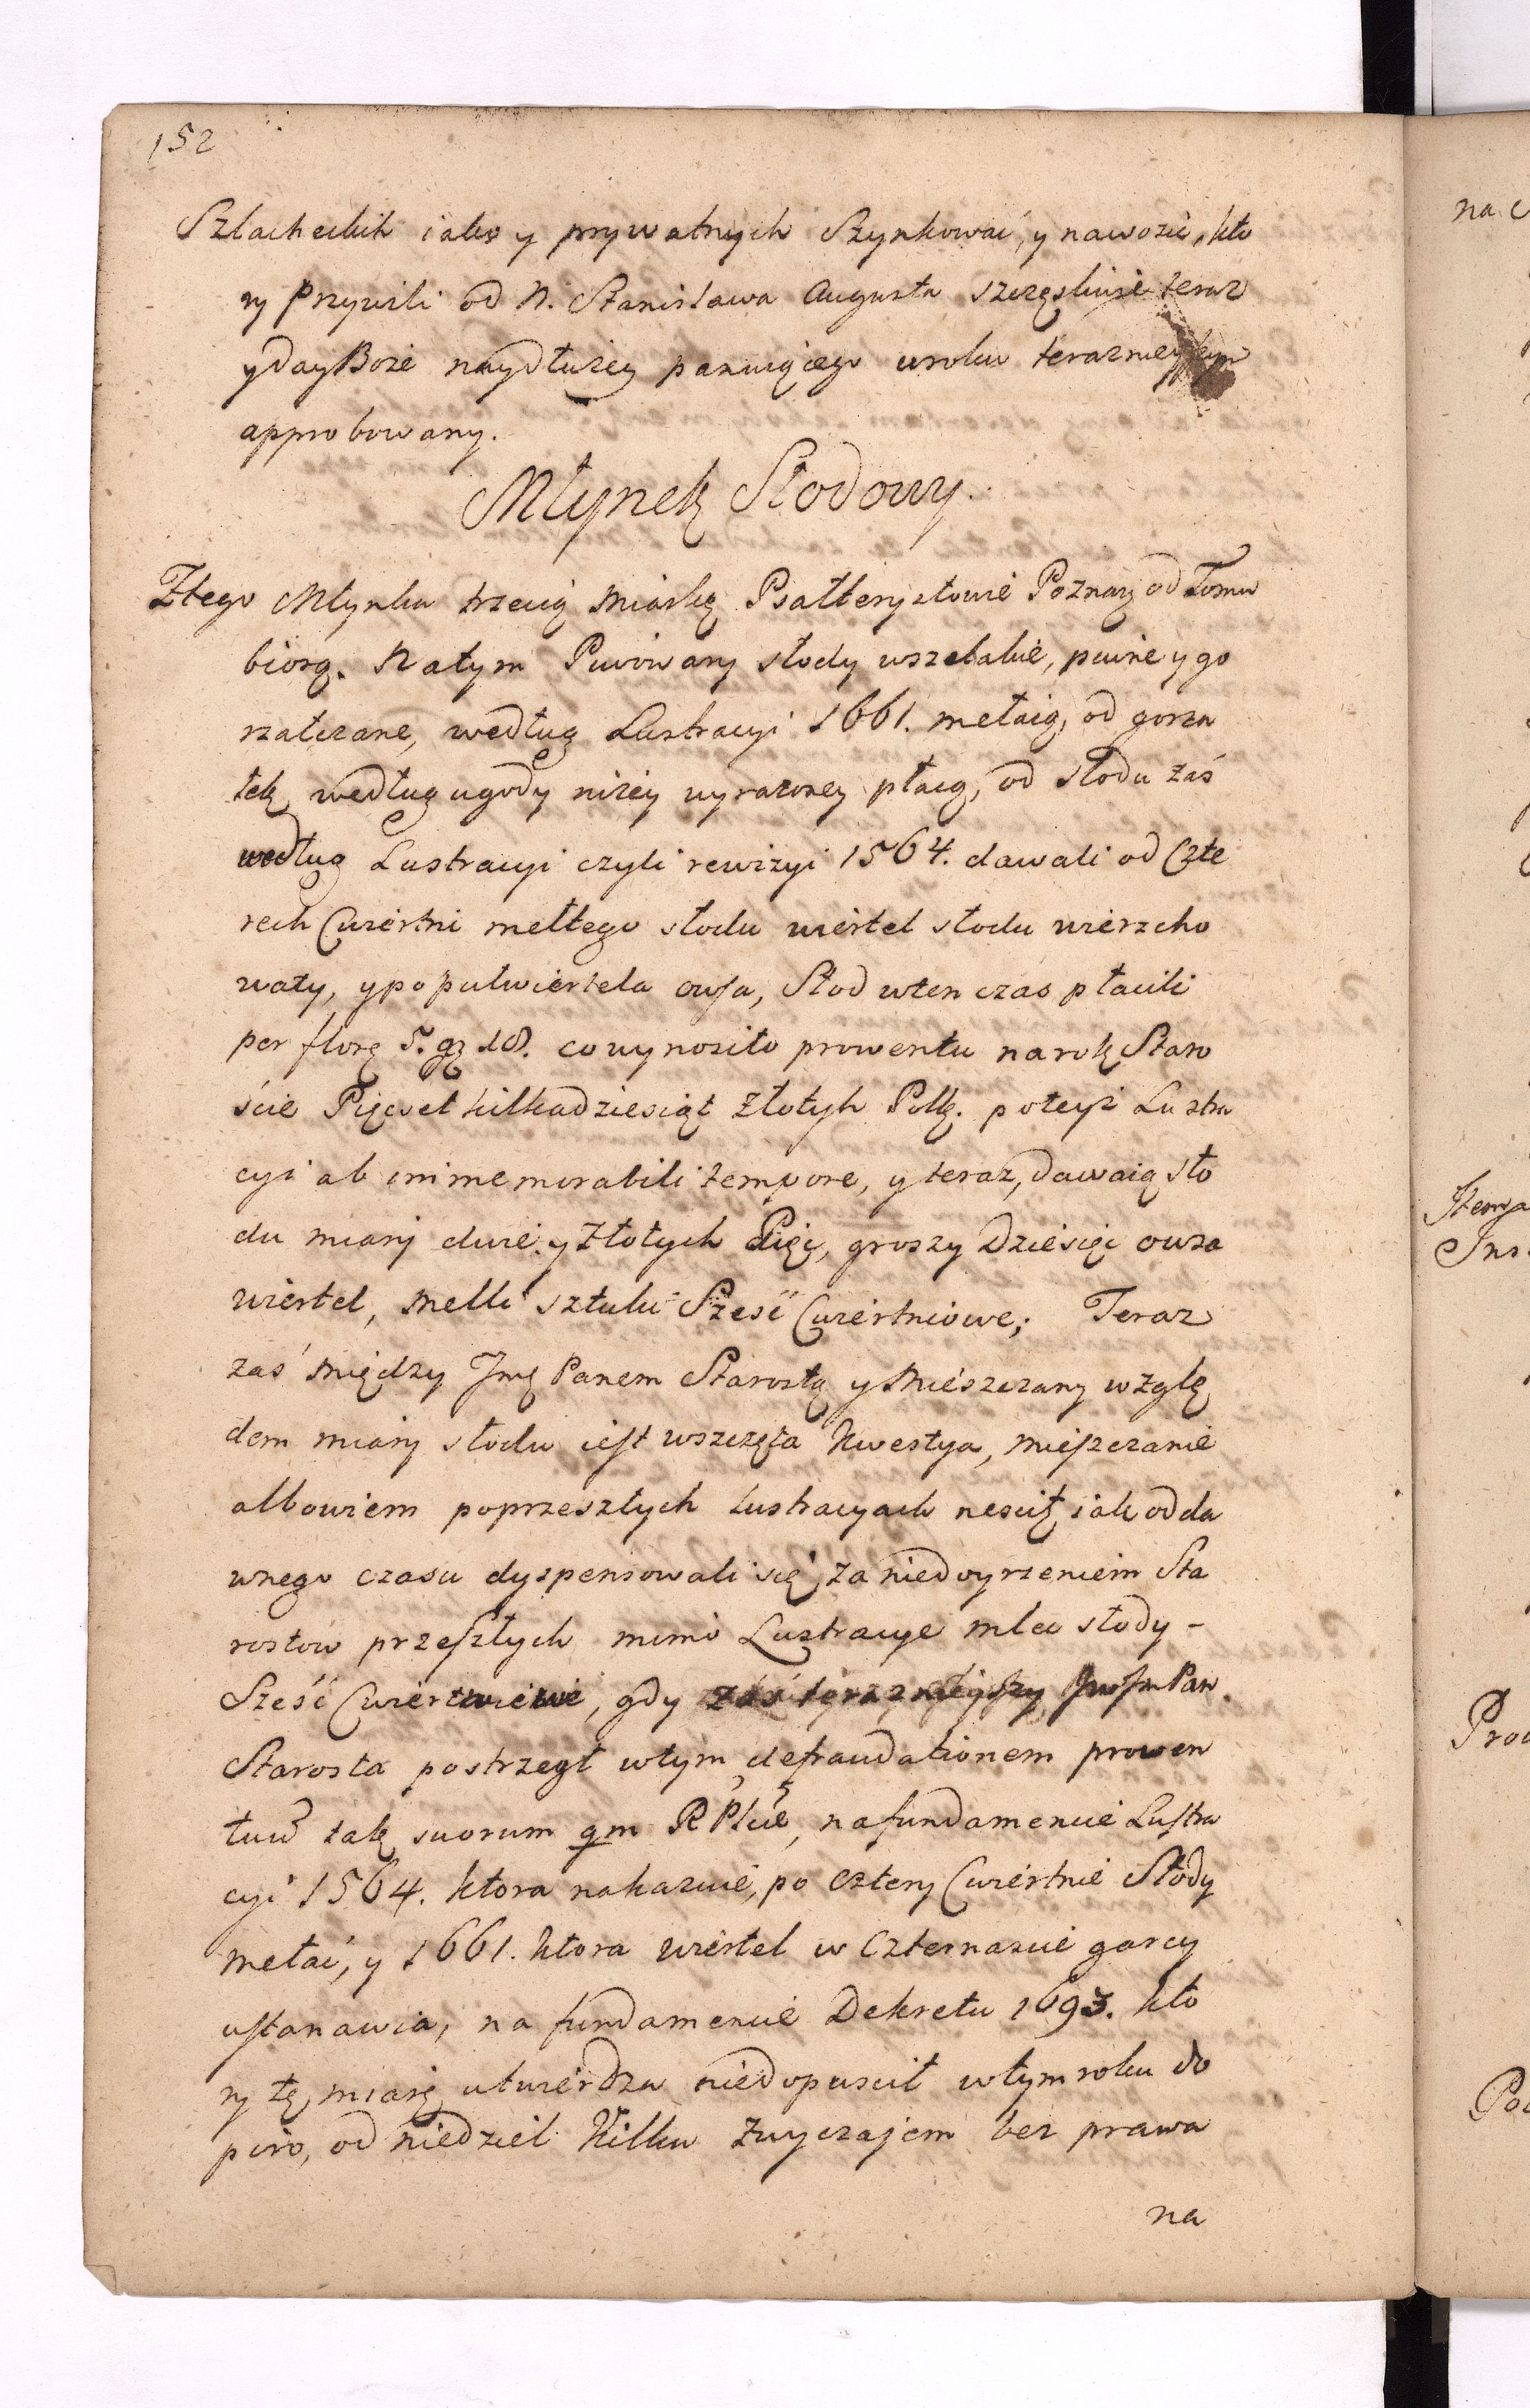 152
Szlacheckich iako y prywatnych Szynkować, y nawozić, kto
ry Przywili od N. Stanisława Augusta szczęsliwie teraz
y day Boże naydłużey panuiącego wroku terazneyszym
approbowany.
Młynek Słodowy.
Ztego Młynka trzecią Miarkę Psałterystowie Poznań od Tomu
biorą. Natym Piwowary słody wszelakie, piwne y go
rzałczane, według Lustracyi 1661. mełaią, od gorza
łek według ugody niżey wyrażoney płacą, od słodu zaś
według Lustracyi czyli rewizyi 1564. dawali od Czte
rech Cwiertni mełtego słodu wiertel słodu wierzcho
waty, ypo pułwiertela owsa, Słod wten czas płacili
per flor 5. gr 18. co wynosiło prowentu na rok Staro
ście Pięcset kilkadziesiąt Złotych Polk. po teyże Lustra
cyi ab immemorabili tempore, y teraz, dawaią sło
du miary dwie, y Złotych Pięć, groszy Dziesięć owsa
wiertel, mełli sztuki Sześć Cwiertniowe; Teraz
zaś między Jmę Panem Starostą y Mieszczany wzglę
dem miary słodu iest wszczęta Kwestya, mieszczanie
albowiem poprzeszłych Lustracyach nescit iak odda
wnego czasu dyspensowali się, za niedoyrzeniem Sta
rostow przeszłych mimo Lustracye mleć słody -
Sześć Cwiertniowe, gdy zaś teraznieyszy Pan
Starosta postrzegł wtym defraudationem prowen
tuw tak suorum qm R Plcæ, na fundamencie Lustra
cyi 1564. ktora nakazuie, po cztery Cwiertnie Słody
mełać, y 1661. ktora wiertel w Czternascie garcy
ustanawia, na fundamencie Dekretu 1693. kto
ry tę miarę utwierdza niedopuscił wtym roku do
piro, od niedziel Kilku Zwyczajem bez prawa
na